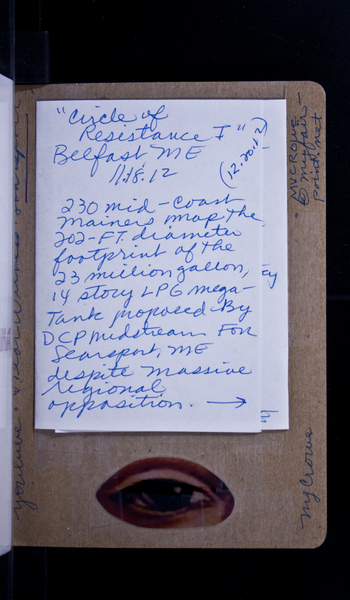 "Circle of
Resistance I"
Belfast ME
1.28.12
(12.20.12)
230 mid-coast
Mainers map the
202-FT. diameter
footprint of the
23 million gallon,
14 story LPG mega-
Tank proposed By
DCP midstream For
Searsport, ME
despite massive
regional
opposition. →
MYCROWE
@ myfair-
point.net
MyCrowe
youtube: